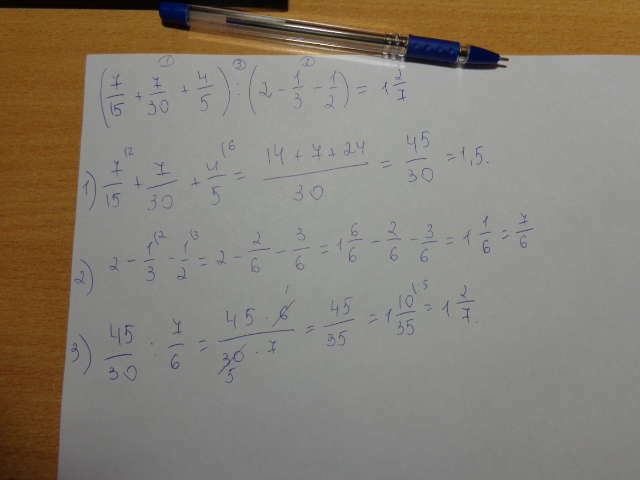 (7/15 ① + 7/30 + 4/5) ③ : (2 - 1/3 ② - 1/2) = 1 2/7
1) 7/15 (2 + 7/30 + 4/5 (6 = (14 + 7 + 24)/30 = 45/30 = 1,5.
2) 2 - 1/3 (2 - 1/2 (3 = 2 - 2/6 - 3/6 = 1 6/6 - 2/6 - 3/6 = 1 1/6 = 7/6
3) 45/30 : 7/6 = (45 · 6 1)/(30 5 · 7) = 45/35 = 1 10/35 (5 = 1 2/7.